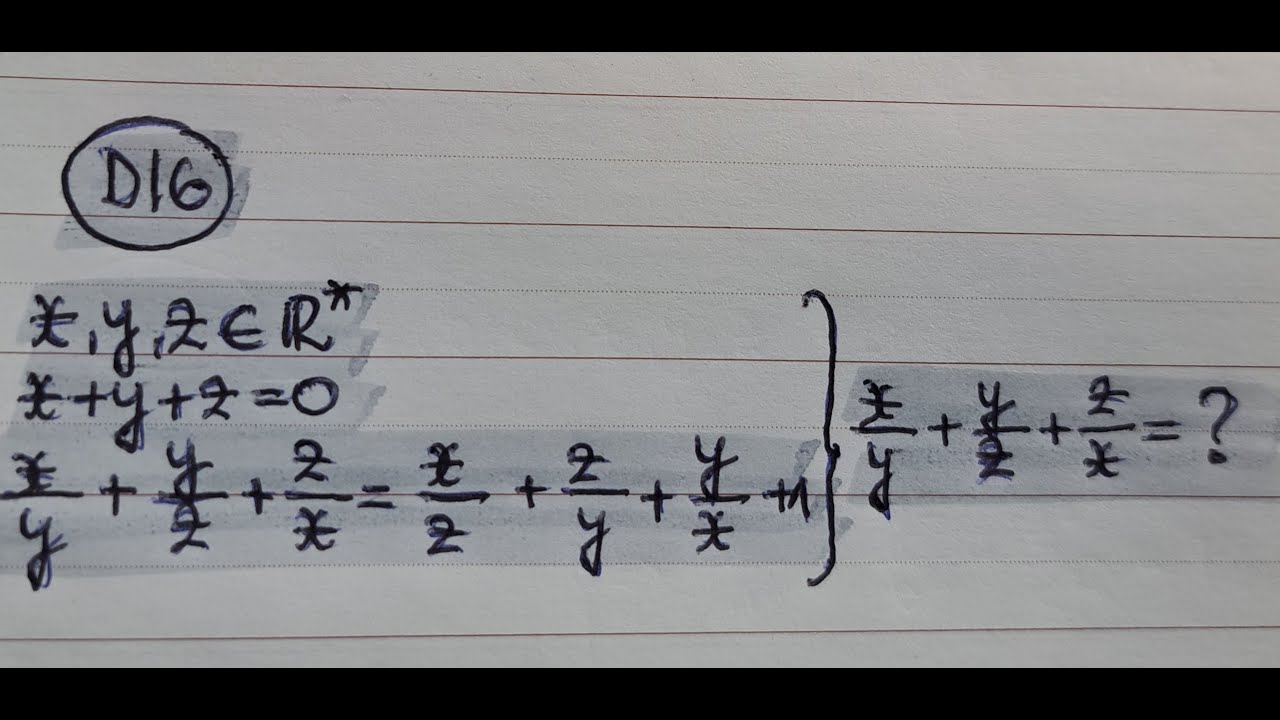 D16
x, y, z ∈ ℝ*
x + y + z = 0
x/y + y/z + z/x = x/z + z/y + y/x + 1 } x/y + y/z + z/x = ?